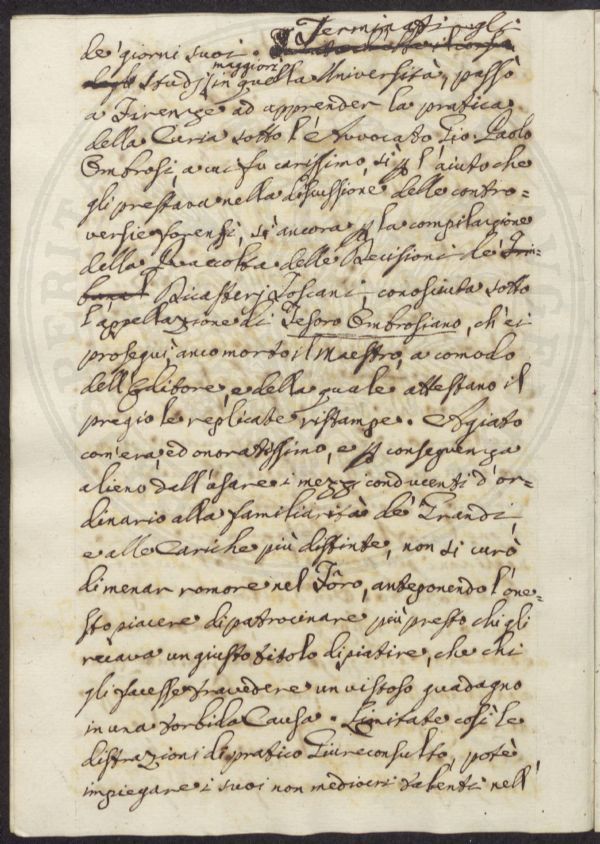 de' giorni suoi. Terminati gli
studj maggiori in quella Università, passò
a Firenze ad apprender la pratica
della Curia sotto l'Avvocato Gio: Paolo
Ombrosi, a cui fu carissimo, sì p l'aiuto che
gli prestava nella discussione delle contro=
versie forensi, sì ancora p la compilazione
della Raccolta delle Decisioni de' Tri=
bunal Dicasterj Toscani, conosciuta sotto
l'appellazione di Tesoro Ombrosiano, ch'ei
proseguì, anco morto il Maestro, a comodo
dell'Editore, e della quale attestano il
pregio le replicate ristampe. Agiato
com'era, ed onoratissimo, e p conseguenza
alieno dall'usare i mezzi conducenti d'or=
dinario alla familiarità de' Grandi,
e alle Cariche più distinte, non si curò
di menar romore nel Foro, anteponendo l'one=
sto piacere di patrocinare più presto chi gli
recava un giusto titolo di piatire, che chi
gli facesse travedere un vistoso guadagno
in una torbida Causa. Limitate così le
distrazioni di pratico Giureconsulto, potè
impiegare i suoi non mediocri talenti nell'